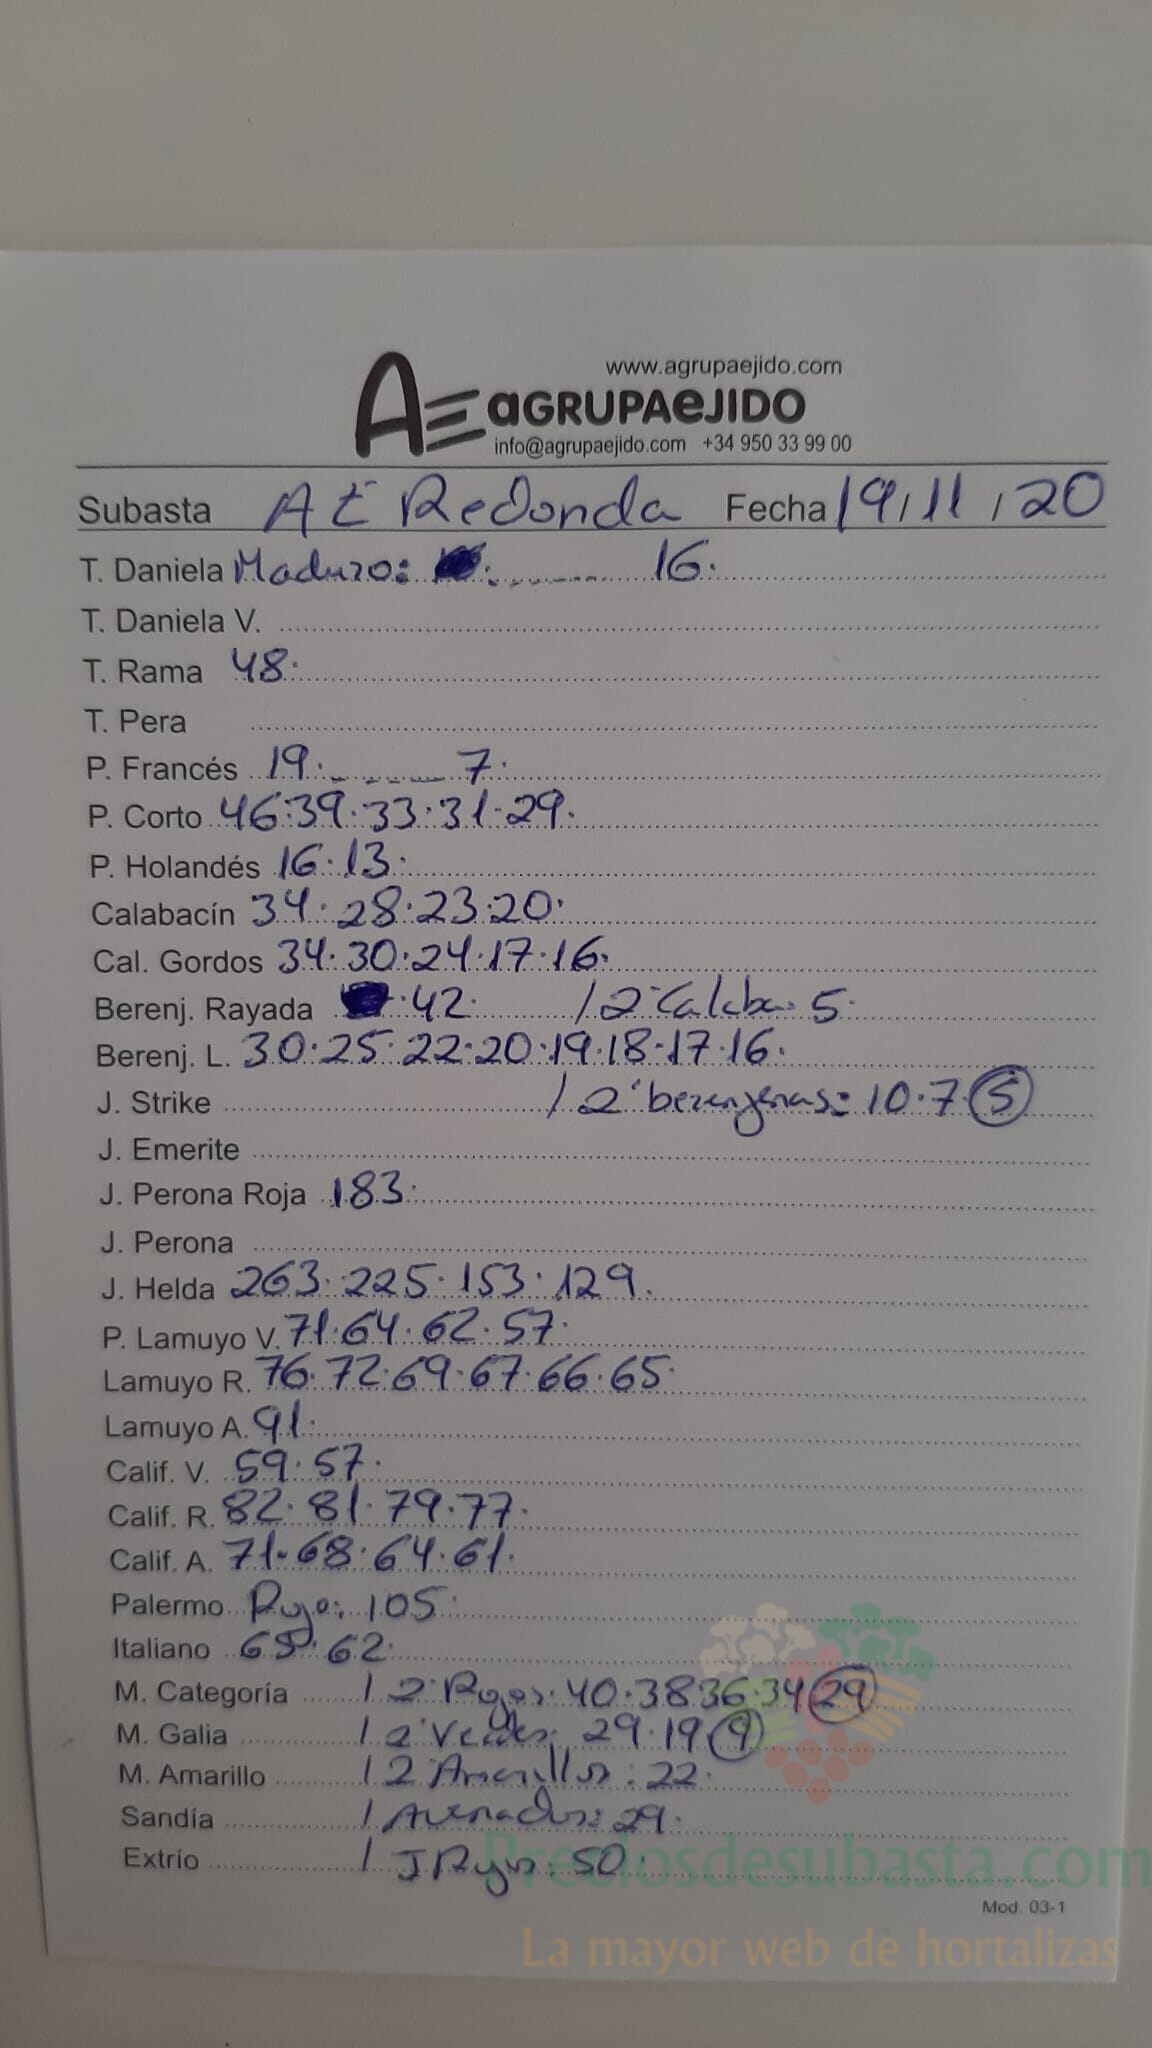 www.agrupaejido.com
AE aGRUPAeJIDO
info@agrupaejido.com +34 950 33 99 00
Subasta AE Redonda Fecha 19/11/20
T. Daniela Maduro: 16.
T. Daniela V.
T. Rama 48.
T. Pera
P. Francés 19. ---- 7.
P. Corto 46.39.33.31.29.
P. Holandés 16.13.
Calabacín 34.28.23.20.
Cal. Gordos 34.30.24.17.16.
Berenj. Rayada .42. / 2ª Calaba. 5.
Berenj. L. 30.25.22.20.19.18.17.16.
J. Strike / 2ª berenjenas: 10.7.5
J. Emerite
J. Perona Roja 183.
J. Perona
J. Helda 263.225.153.129.
P. Lamuyo V. 71.64.62.57.
Lamuyo R. 76.72.69.67.66.65.
Lamuyo A. 91.
Calif. V. 59.57.
Calif. R. 82.81.79.77.
Calif. A. 71.68.64.61.
Palermo Rojo: 105.
Italiano 65.62.
M. Categoría / 2ª Rojos: 40.38.36.34.29
M. Galia / 2ª Verdes: 29.19.9
M. Amarillo / 2ª Amarillos: 22.
Sandía / Asurcados: 29.
Extrío / J Rojos: 50.
Preciosdesubasta.com
Mod. 03-1
La mayor web de hortalizas